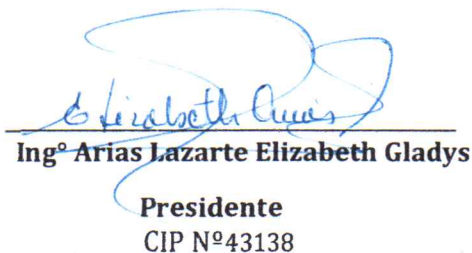 Elizabeth Arias
Ingº Arias Lazarte Elizabeth Gladys
Presidente
CIP Nº43138